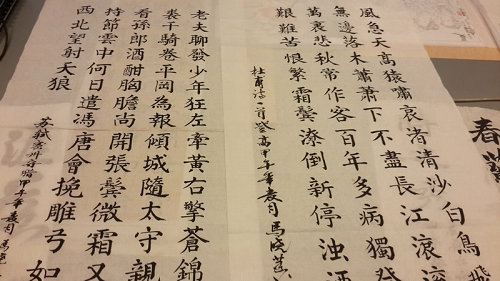 春
風急天高猿嘯哀渚清沙白鳥飛
無邊落木蕭蕭下不盡長江滾滾
萬裏悲秋常作客百年多病獨登
艱難苦恨繁霜鬢潦倒新停浊酒
杜甫詩一首登高甲午年 月馬晓
老夫聊發少年狂左牽黃右擎蒼錦
裘千騎卷平岡為報傾城隨太守親
看孫郎酒酣胸膽尚開張鬢微霜又
持節雲中何日遣馮唐會挽雕弓如
西北望射天狼
蘇軾密州 甲午年 月馬